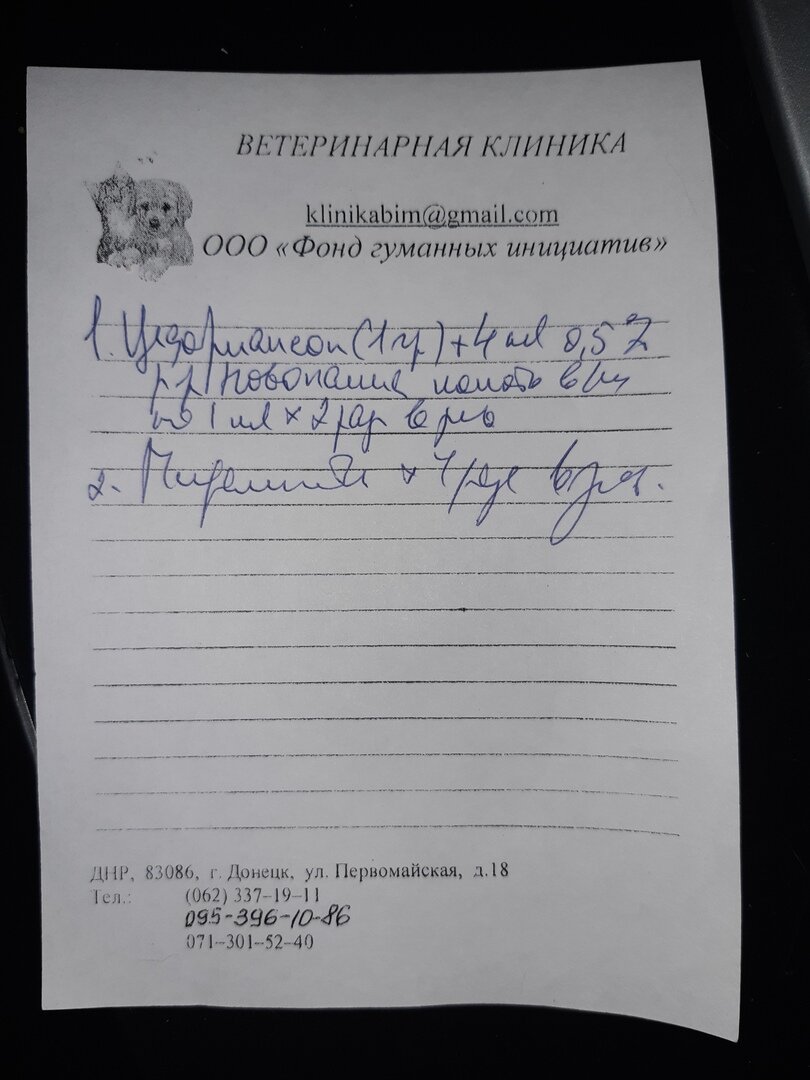 ВЕТЕРИНАРНАЯ КЛИНИКА
klinikabim@gmail.com
ООО «Фонд гуманных инициатив»
1. (1 гр) + 4 мл 0,5%
р-р новокаина колоть в/м
по 1 мл × 2 раз в
2. ×
ДНР, 83086, г. Донецк, ул. Первомайская, д.18
Тел.: (062) 337-19-11
095-396-10-86
071-301-52-40